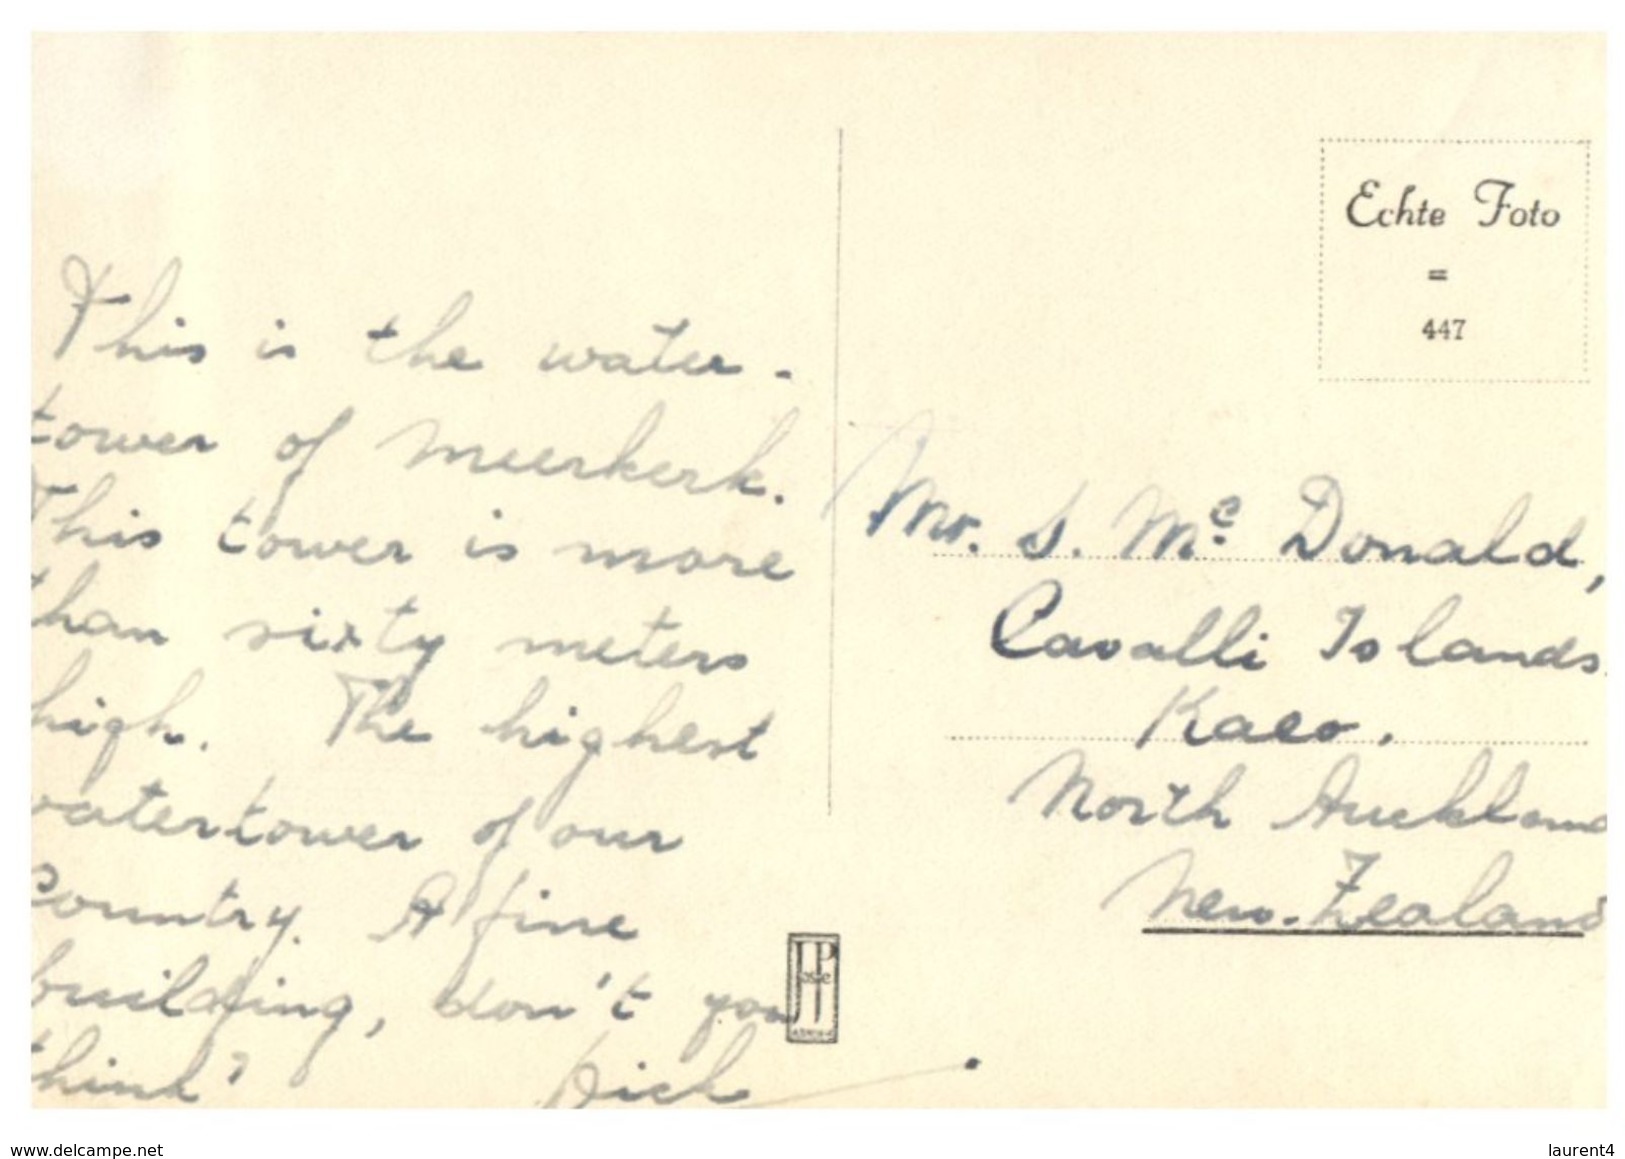 This is the water-
tower of Meerkerk.
This tower is more
than sixty meters
high. The highest
watertower of our
country. A fine
building, don't you
think?
Dick
Echte Foto
=
447
Mr. S. Mc Donald,
Cavalli Islands.
Kaeo.
North Auckland
New-Zealand
JP
www.delcampe.net
laurent4